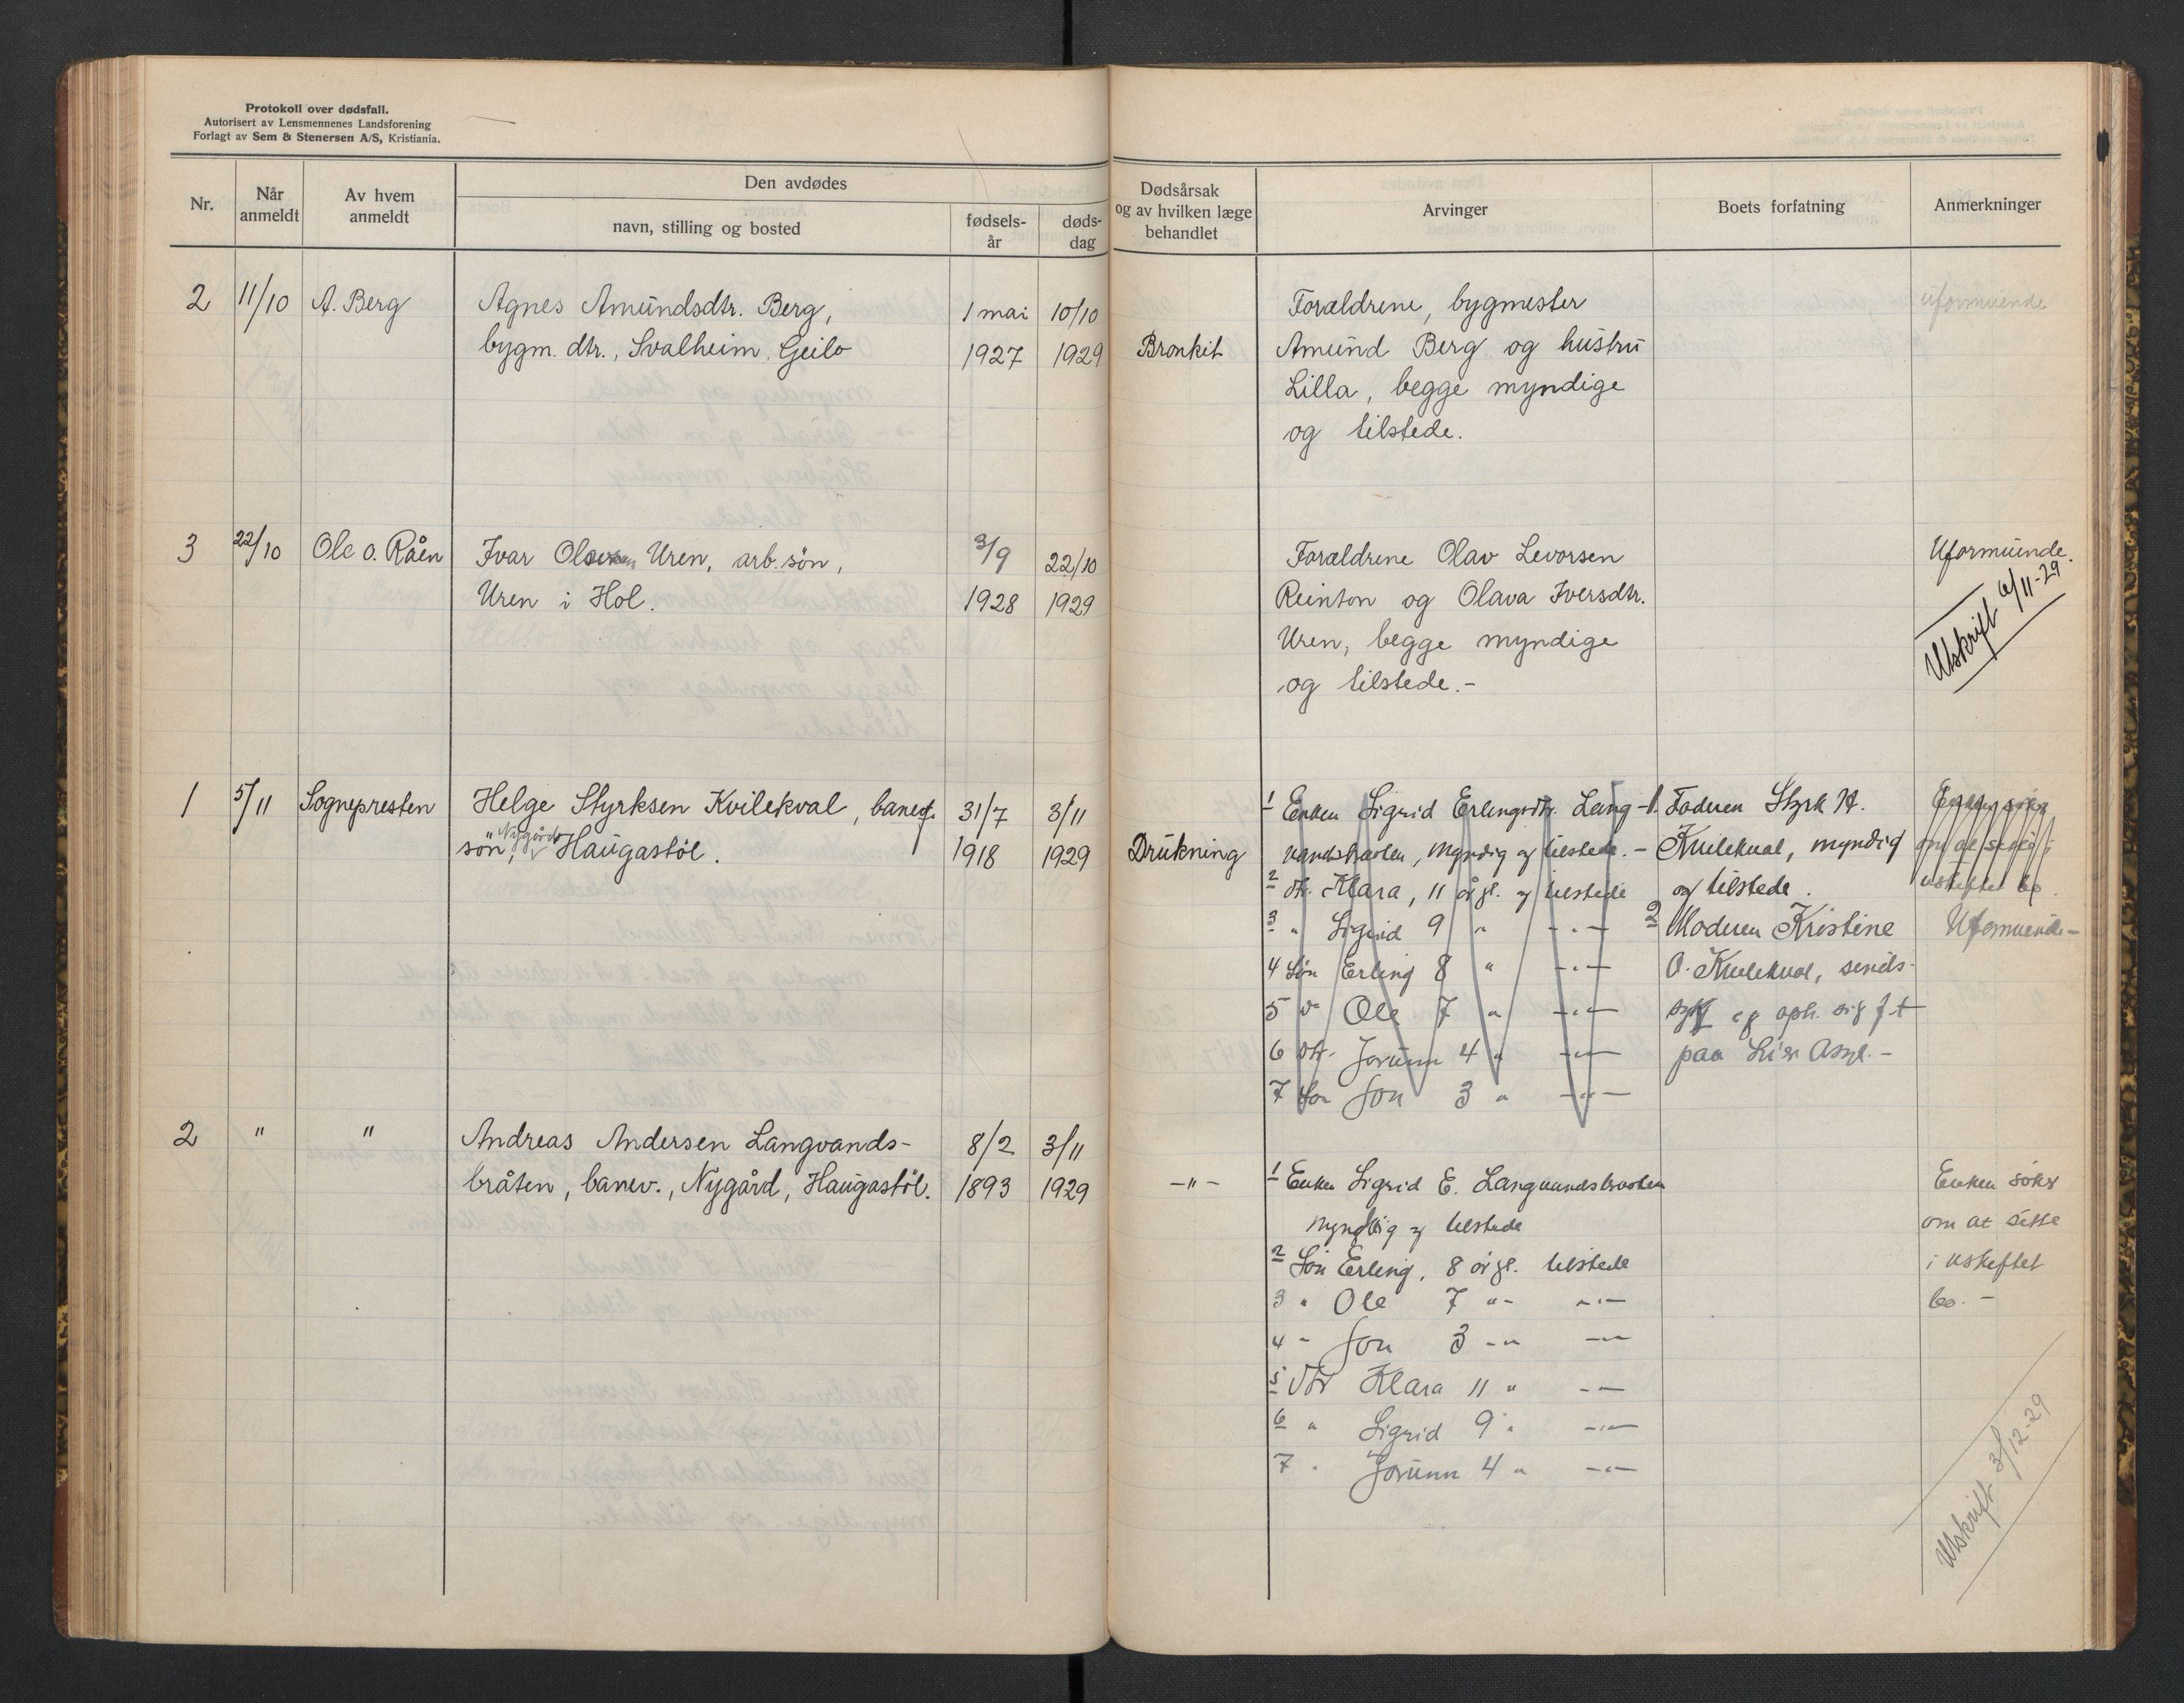 Protokoll over dødsfall.
Autorisert av Lensmennenes Landsforening
Forlagt av Sem & Stenersen A/S, Kristiania.
Nr.
Når
anmeldt
Av hvem
anmeldt
Den avdødes
navn, stilling og bosted
fødsels-
år
døds-
dag
Dødsårsak
og av hvilken læge
behandlet
Arvinger
Boets forfatning
Anmerkninger
2 11/10 A. Berg
Agnes Amundsdtr. Berg,
bygm. dtr., Svalheim, Geilo
1 mai
1927
10/10
1929
Bronkit
Forældrene, bygmester
Amund Berg og hustru
Lilla, begge myndige
og tilstede.
uformuende
3 22/10 Ole O. Råen
Ivar Uren, arb. søn,
Uren i Hol.
3/9
1928
22/10
1929
Forældrene Olav Levorsen
Reinton og Olava Iversdtr.
Uren, begge myndige
og tilstede.-
Uformuende.
Utskrift 6/11-29
1 5/11 Sognepresten
Helge Styrksen Kvilekval, banef.
søn, Nygård Haugastøl.
31/7
1918
3/11
1929
Drukning
1 Enken Sigrid Erlingsdtr. Lang-
vandsbraaten, myndig og tilstede. -
2 dtr. Klara, 11 år gl. og tilstede
3 " Sigrid 9 " -"-
4 søn Erling 8 " -"-
5 " Ole 7 " -"-
6 dtr. Jorunn 4 " -"-
7 søn Jon 3 " -"-
1. Faderen Styrk H.
Kvilekval, myndig
og tilstede.
2 Moderen Kristine
O. Kvilekval, sinds-
syk og oph. sig f.t
paa Lier Asyl. -
Enken søker
om at sitte i
uskiftet bo.
Uformuende -
2 " "
Andreas Andersen Langvands-
bråten, banev., Nygård, Haugastøl.
8/2
1893
3/11
1929
-"-
1 Enken Sigrid E. Langvandsbraaten
myndig og tilstede
2 Søn Erling, 8 år gl. tilstede
3 " Ole 7 "- -"-
4 " Jon 3 -" -"-
5 dtr Klara 11 " -"-
6 " Sigrid 9 " -"-
7 " Jorunn 4 " -"-
Enken søker
om at sitte
i uskiftet
bo. -
Utskrift 3/12-29